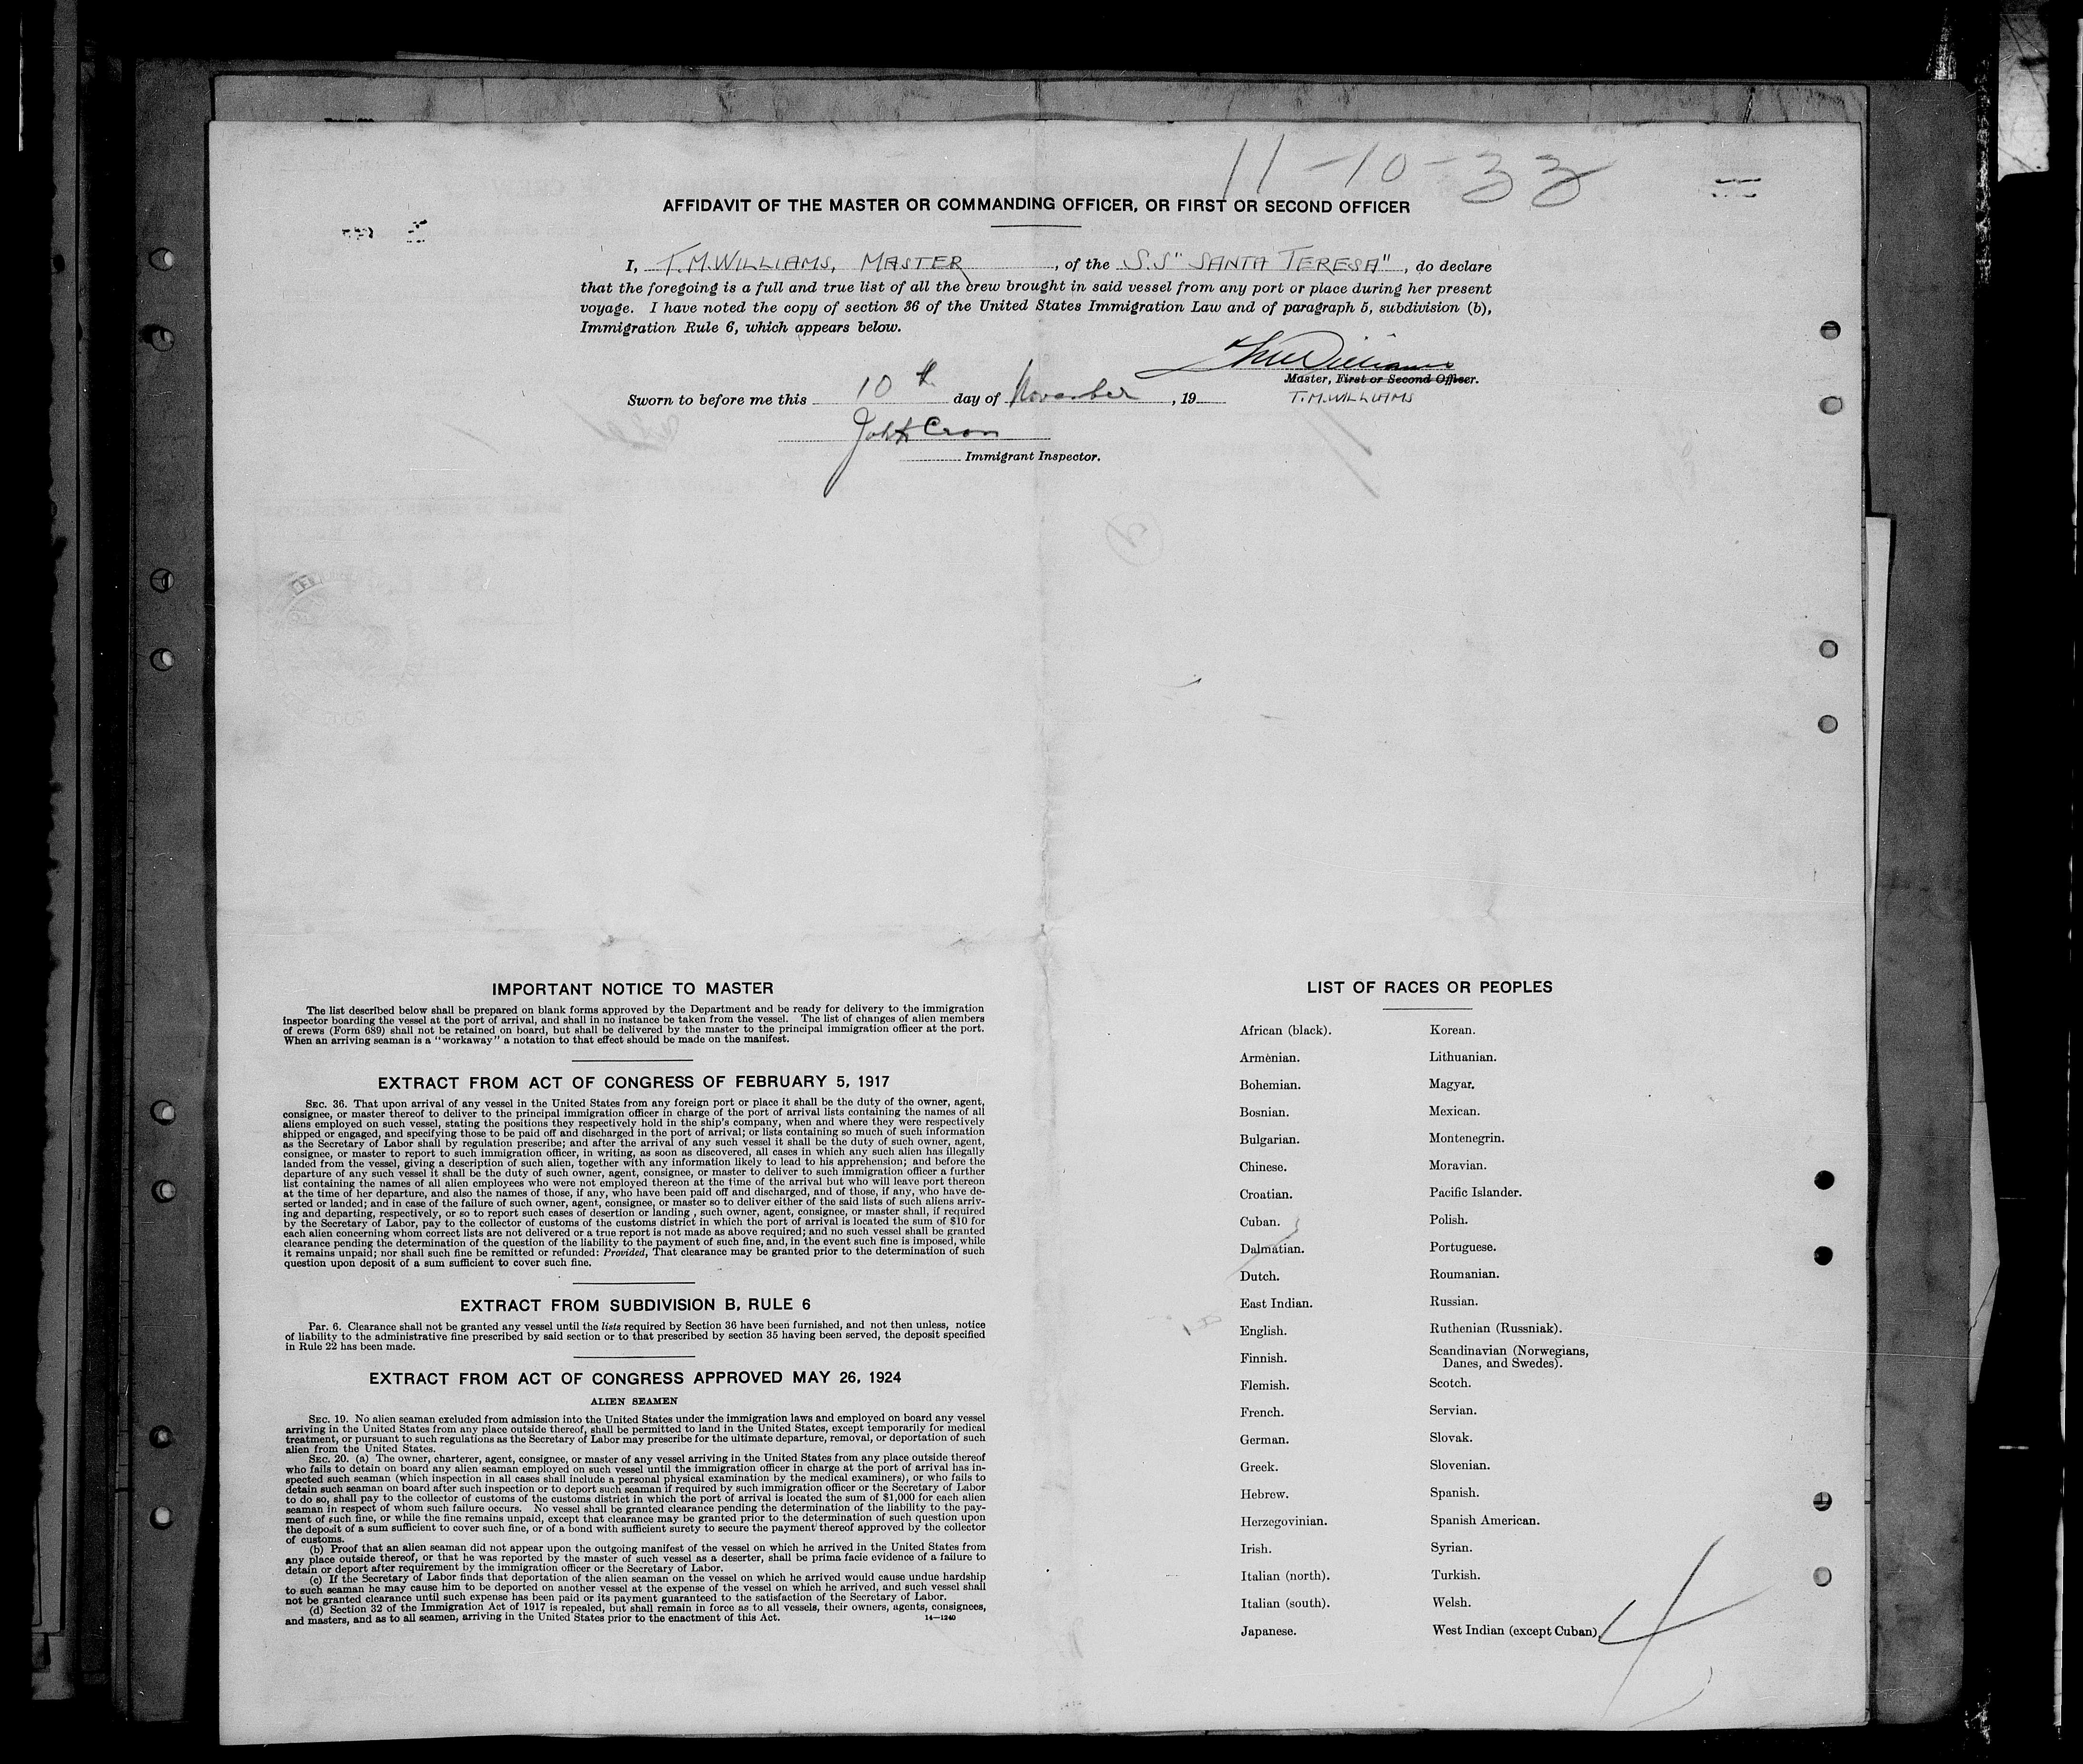 11-10-33
AFFIDAVIT OF THE MASTER OR COMMANDING OFFICER, OR FIRST OR SECOND OFFICER
I, T.M.WILLIAMS, MASTER, of the S.S" SANTA TERESA", do declare
that the foregoing is a full and true list of all the crew brought in said vessel from any port or place during her present
voyage. I have noted the copy of section 36 of the United States Immigration Law and of paragraph 5, subdivision (b),
Immigration Rule 6, which appears below.
TMWilliams
Master, First or Second Officer.
Sworn to before me this 10th day of November, 19
T.M.WILLIAMS
Immigrant Inspector.
IMPORTANT NOTICE TO MASTER
The list described below shall be prepared on blank forms approved by the Department and be ready for delivery to the immigration
inspector boarding the vessel at the port of arrival, and shall in no instance be taken from the vessel. The list of changes of alien members
of crews (Form 689) shall not be retained on board, but shall be delivered by the master to the principal immigration officer at the port.
When an arriving seaman is a "workaway" a notation to that effect should be made on the manifest.
EXTRACT FROM ACT OF CONGRESS OF FEBRUARY 5, 1917
SEC. 36. That upon arrival of any vessel in the United States from any foreign port or place it shall be the duty of the owner, agent,
consignee, or master thereof to deliver to the principal immigration officer in charge of the port of arrival lists containing the names of all
aliens employed on such vessel, stating the positions they respectively hold in the ship's company, when and where they were respectively
shipped or engaged, and specifying those to be paid off and discharged in the port of arrival; or lists containing so much of such information
as the Secretary of Labor shall by regulation prescribe; and after the arrival of any such vessel it shall be the duty of such owner, agent,
consignee, or master to report to such immigration officer, in writing, as soon as discovered, all cases in which any such alien has illegally
landed from the vessel, giving a description of such alien, together with any information likely to lead to his apprehension; and before the
departure of any such vessel it shall be the duty of such owner, agent, consignee, or master to deliver to such immigration officer a further
list containing the names of all alien employees who were not employed thereon at the time of the arrival but who will leave port thereon
at the time of her departure, and also the names of those, if any, who have been paid off and discharged, and of those, if any, who have de-
serted or landed; and in case of the failure of such owner, agent, consignee, or master so to deliver either of the said lists of such aliens arriv-
ing and departing, respectively, or so to report such cases of desertion or landing , such owner, agent, consignee, or master shall, if required
by the Secretary of Labor, pay to the collector of customs of the customs district in which the port of arrival is located the sum of $10 for
each alien concerning whom correct lists are not delivered or a true report is not made as above required; and no such vessel shall be granted
clearance pending the determination of the question of the liability to the payment of such fine, and, in the event such fine is imposed, while
it remains unpaid; nor shall such fine be remitted or refunded: Provided, That clearance may be granted prior to the determination of such
question upon deposit of a sum sufficient to cover such fine.
EXTRACT FROM SUBDIVISION B, RULE 6
PAR. 6. Clearance shall not be granted any vessel until the lists required by Section 36 have been furnished, and not then unless, notice
of liability to the administrative fine prescribed by said section or to that prescribed by section 35 having been served, the deposit specified
in Rule 22 has been made.
EXTRACT FROM ACT OF CONGRESS APPROVED MAY 26, 1924
ALIEN SEAMEN
SEC. 19. No alien seaman excluded from admission into the United States under the immigration laws and employed on board any vessel
arriving in the United States from any place outside thereof, shall be permitted to land in the United States, except temporarily for medical
treatment, or pursuant to such regulations as the Secretary of Labor may prescribe for the ultimate departure, removal, or deportation of such
alien from the United States.
SEC. 20. (a) The owner, charterer, agent, consignee, or master of any vessel arriving in the United States from any place outside thereof
who fails to detain on board any alien seaman employed on such vessel until the immigration officer in charge at the port of arrival has in-
spected such seaman (which inspection in all cases shall include a personal physical examination by the medical examiners), or who fails to
detain such seaman on board after such inspection or to deport such seaman if required by such immigration officer or the Secretary of Labor
to do so, shall pay to the collector of customs of the customs district in which the port of arrival is located the sum of $1,000 for each alien
seaman in respect of whom such failure occurs. No vessel shall be granted clearance pending the determination of the liability to the pay-
ment of such fine, or while the fine remains unpaid, except that clearance may be granted prior to the determination of such question upon
the deposit of a sum sufficient to cover such fine, or of a bond with sufficient surety to secure the payment thereof approved by the collector
of customs.
(b) Proof that an alien seaman did not appear upon the outgoing manifest of the vessel on which he arrived in the United States from
any place outside thereof, or that he was reported by the master of such vessel as a deserter, shall be prima facie evidence of a failure to
detain or deport after requirement by the immigration officer or the Secretary of Labor.
(c) If the Secretary of Labor finds that deportation of the alien seaman on the vessel on which he arrived would cause undue hardship
to such seaman he may cause him to be deported on another vessel at the expense of the vessel on which he arrived, and such vessel shall
not be granted clearance until such expense has been paid or its payment guaranteed to the satisfaction of the Secretary of Labor.
(d) Section 32 of the Immigration Act of 1917 is repealed, but shall remain in force as to all vessels, their owners, agents, consignees,
and masters, and as to all seamen, arriving in the United States prior to the enactment of this Act.
14—1240
LIST OF RACES OR PEOPLES
African (black).
Armenian.
Bohemian.
Bosnian.
Bulgarian.
Chinese.
Croatian.
Cuban.
Dalmatian.
Dutch.
East Indian.
English.
Finnish.
Flemish.
French.
German.
Greek.
Hebrew.
Herzegovinian.
Irish.
Italian (north).
Italian (south).
Japanese.
Korean.
Lithuanian.
Magyar.
Mexican.
Montenegrin.
Moravian.
Pacific Islander.
Polish.
Portuguese.
Roumanian.
Russian.
Ruthenian (Russniak).
Scandinavian (Norwegians,
Danes, and Swedes).
Scotch.
Servian.
Slovak.
Slovenian.
Spanish.
Spanish American.
Syrian.
Turkish.
Welsh.
West Indian (except Cuban).
4